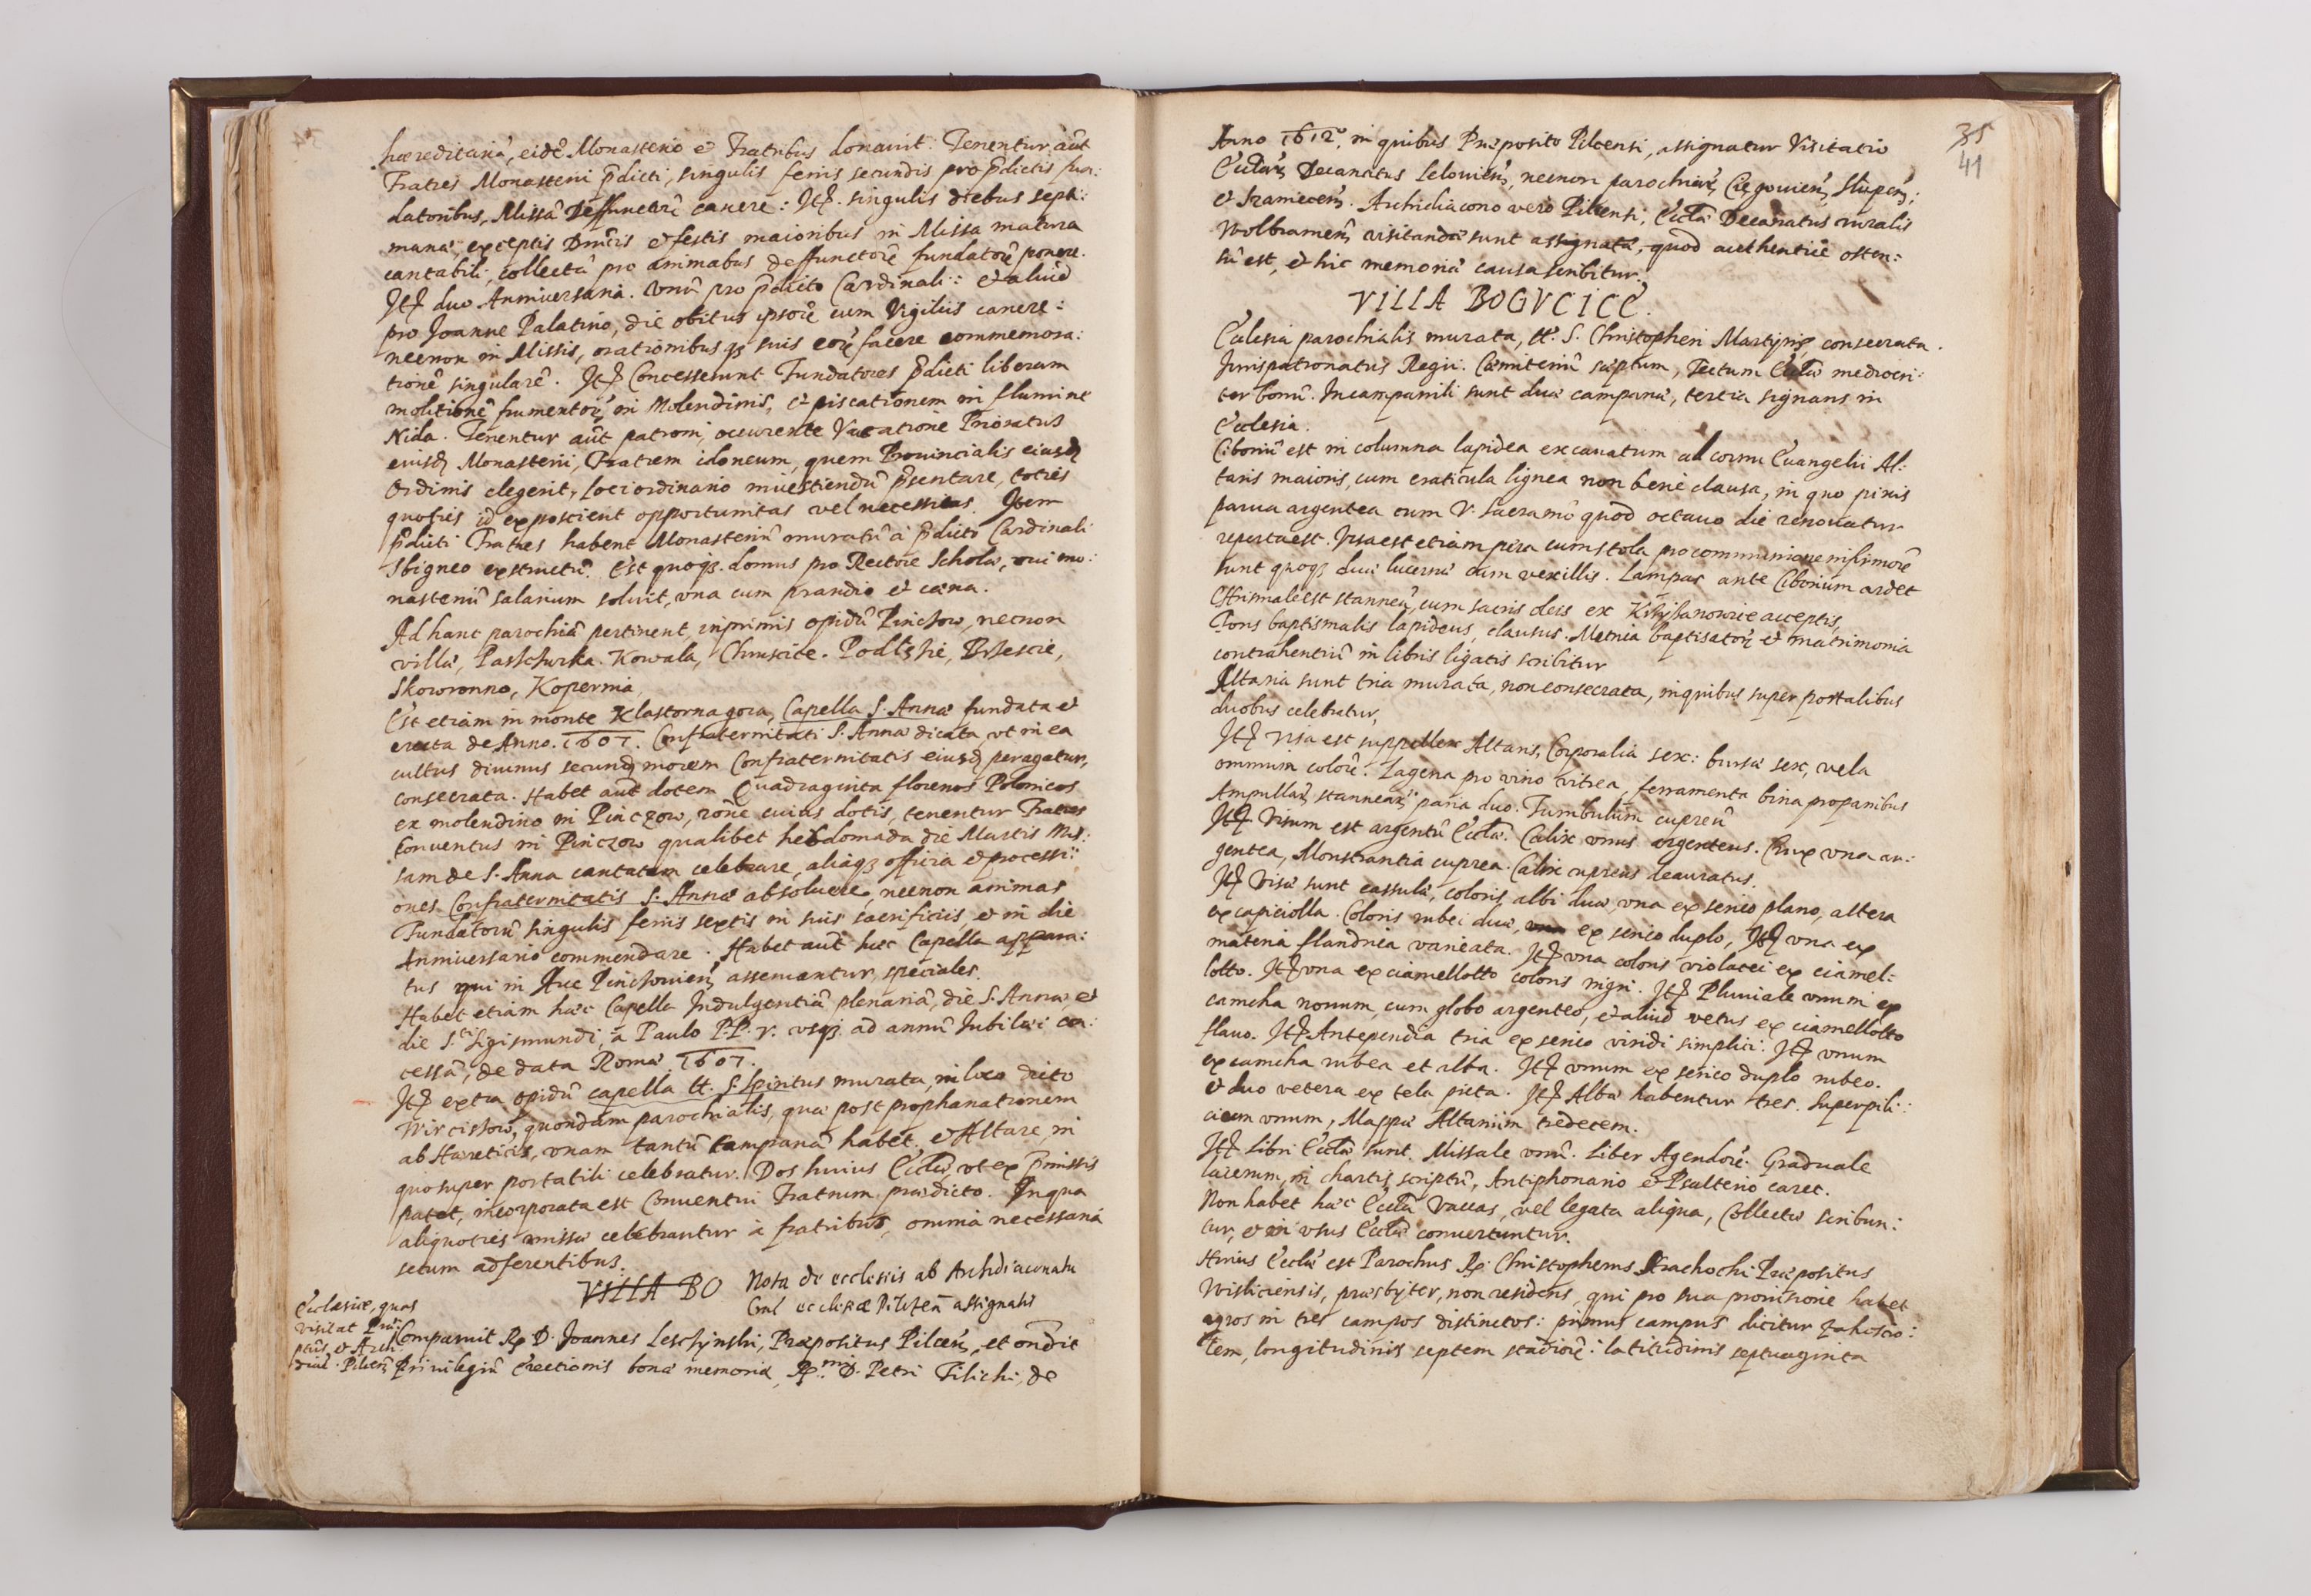 hæreditariã, eidẽ Monasterio et Fratribus donauit. Tenentur aũt
Fratres Monasterii p̃dicti, singulis feriis secundis pro p̃dictis fun:
datoribus, Missã Deffunctorũ canere: Itẽ singulis diebus septi:
manæ, exceptis Dnĩcis et festis maioribus in Missa matura
cantabili, collectã pro animabus deffunctorũ fundatorũ ponere.
Itẽ duo Anniuersaria. Vnũ pro p̃dicto Cardinali: et aliud
pro Joanne Palatino, die obitus ipsorũ cum Vigiliis canere:
necnon in Missis, orationibusq3 suis eorũ facere commemora:
tionẽ singularẽ. Itẽ Concesserunt Fundatores p̃dicti liberam
molitionẽ frumentorũ in Molendinis, et piscationem in flumine
Nida. Tenentur aũt patroni, occurente Vacatione Prioratus
eiusd̃ Monasterii, Fratrem idoneum, quem Prouincialis eiusd̃
Ordinis elegerit, loci ordinario inuestiendũ p̃sentare, toties
quoties id exposcient opportunitas vel necessitas. Item
p̃dicti Fratres habent Monasteriũ muratũ à p̃dicto Cardinali
Sbigneo exstructũ. Est quoq3 domus pro Rectore Scholæ, cui mo:
nasteriũ salarium soluit, vna cum prandio et cæna.
Ad hanc parochiã pertinent, inprimis opidũ Pinczow, necnon
villæ, Pasturka. Kowala, Chruscice. Podlęże, Brzescie,
Skowronno, Kopernia,
Est etiam in monte Klastorna gora, Capella S. Annæ fundata et
erecta de Anno. 1607. Confraternitati S. Annæ dicata, vt in ea
cultus diuinus secund̃ morem Confraternitatis eiusd̃ peragatur,
consecrata. Habet aũt dotem Quadraginta florenos Polonicos
ex molendino in Pinczow, rõne cuius dotis, tenentur Fratres
Conuentus in Pinczow qualibet hebdomada die Martis Mis:
sam de S. Anna cantatam celebrare, aliaq3 officia et processi:
ones Confraternitatis S. Annæ absoluere, necnon animas
Fundatorũ singulis feriis sextis in suis sacrificiis, et in die
Anniuersario commendare. Habet aũt hæc Capella appara:
tus qui in Arce Pinczouieñ asseruantur, speciales.
Habet etiam hæc Capella Indulgentiã plenariã, die S. Annæ, et
die S.ti Sigismundi, à Paulo P.P. V. vsq3 ad annũ Iubilæi con:
cessã, de data Romæ 1607.
Itẽ extra opidũ capella tt. S. Spiritus murata, in loco dicto
Mirciszow, quondam parochialis, quæ post prophanationem
ab Hæreticis, vnam tantũ campanã habet. et Altare, in
quo super portatili celebratur. Dos huius Ecclæ, vt ex p̃missis
patet, incorporata est Conuentui Fratrum prædicto. In qua
aliquoties missæ celebrantur à fratribus, omnia necessaria
secum adferentibus.
VILLA BO Nota de ecclesiis ab Archidiaconatu
ecclesiæ Pilceñ assignatis
Ecclæsiæ, quas
visitat Præ:
ptus, et Arch:
diac. Pilceñ
Comparuit R. D. Joannes Leszczynski, Præpositus Pilceñ, et ondit
Priuilegiũ Erectionis bonæ memoriæ, R.mi D. Petri Tilicki, de
35
41
Anno 1612, in quibus Præposito Pilcensi, assignatur Visitatio
Ecclarũ Decanatus Lelouieñ, necnon parochiarũ Cięgouieñ, Slupeñ;
et Iramiceñ. Archidiacono vero Pilcensi, Ecclæ Decanatus ruralis
Wolbrameñ visitandæ sunt assignatæ, quod authenticè osten:
sũ est, et hic memoriæ causa scribitur.
VILLA BOGVCICE.
Ecclesia parochialis murata, tt. S. Christopheri Martyris consecrata.
Iurispatronatus Regii. Cæmiteriũ sæptum, Tectum Ecclæ mediocri:
ter bonũ. In campanili sunt duæ campanæ, tertia signans in
Ecclesia.
Ciboriũ est in columna lapidea excauatum ad cornu Euangelii Al:
taris maioris, cum craticula lignea non bene clausa, in quo pixis
parua argentea cum V. Sacramõ quod octauo die renouatur
reperta est. Visa est etiam pera cum stola pro communione infirmorũ
sunt quoq3 duæ lucernæ cum vexillis. Lampas ante Ciborium ardet
Chrismale est stanneũ, cum sacris oleis ex Kiyssanowice acceptis,
Fons baptismalis lapideus, clausus. Metrica baptisatorũ et matrimonia
contrahentiũ in libris ligatis scribitur
Altaria sunt tria murata, non consecrata, in quibus super portatilibus
duobus celebratur,
Itẽ visa est suppellex Altaris, Corporalia sex: bursæ sex, vela
omnium colorũ. Lagena pro vino vitrea, ferramenta bina pro panibus
Ampullarũ stannearũ paria duo. Turribulum cupreũ
Itẽ Visum est argentũ Ecclæ. Calix vnus argenteus. Crux vna ar:
gentea, Monstrantia cuprea. Calix cupreus deauratus.
Itẽ Visæ sunt cassulæ, coloris albi duæ, vna ex serico plano, altera
ex capiciolla. Coloris rubei duæ, vna ex serico duplo, Itẽ vna ex
materia flandrica variata. Itẽ vna coloris violacei ex ciamel:
lotto. Itẽ vna ex ciamellotto coloris nigri. Itẽ Pluuiale vnum ex
camcha nouum, cum globo argenteo, et aliud vetus ex ciamellotto
flauo. Itẽ Antependia tria ex serico viridi simplici. Itẽ vnum
ex camcha rubea et alba. Itẽ vnum ex serico duplo rubeo.
et duo vetera ex tela picta. Itẽ Albæ habentur tres. Superpili:
ceum vnum, Mappæ Altarium tredecem.
Itẽ Libri Ecclæ sunt, Missale vnũ. Liber Agendorũ. Graduale
lacerum, in chartis scriptũ, Antiphonario et Psalterio caret.
Non habet hæc Eccla Vaccas, vel legata aliqua, Collectæ scribun:
tur, et in vsus Ecclæ conuertuntur.
Huius Ecclæ est Parochus R. Christopherus Strachocki Præpositus
Visliciensis, præsbyter, non residens, qui pro sua prouisione habet
agros in tres campos distinctos: primus campus dicitur Zakoscio:
lem, longitudinis septem stadiorũ: latitudinis septuaginta